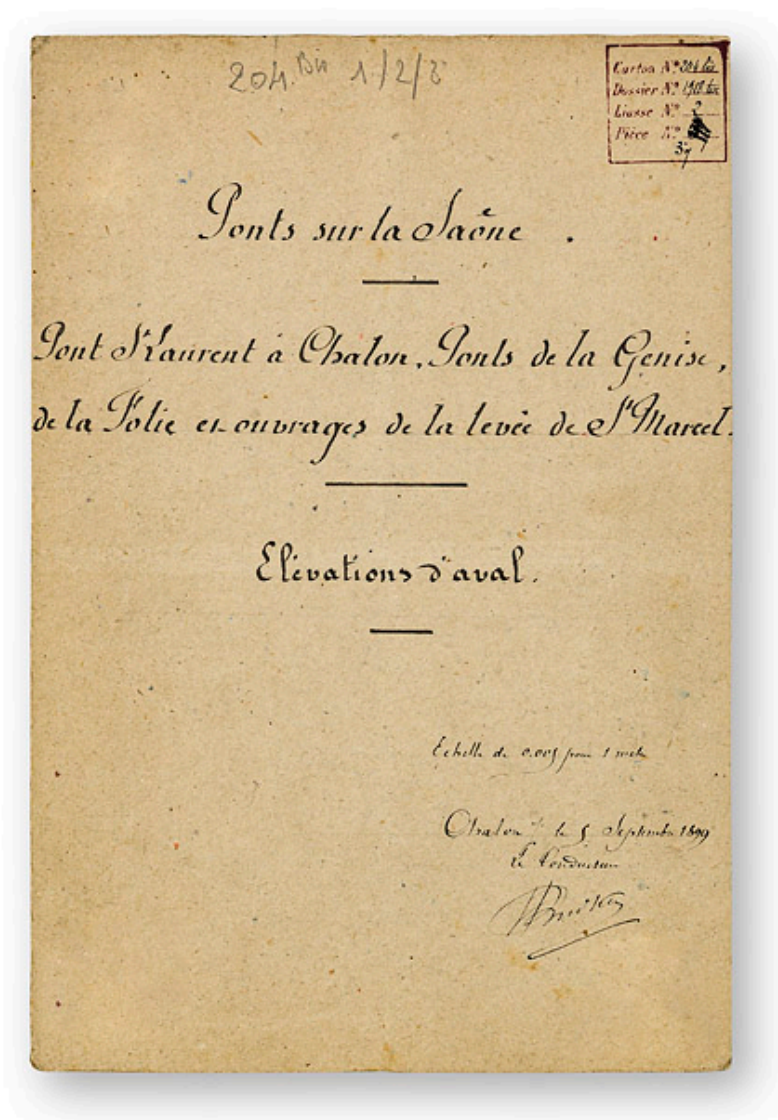 204 Bis 1/2/3
Carton Nº 204 bis
Dossier Nº
Liasse Nº 2
Pièce Nº
37
Ponts sur la Saône.
Pont St Laurent à Chalon, Ponts de la Genise,
de la Folie et ouvrages de la levée de St Marcel.
Elévations d'aval.
Echelle de 0.005 pour 1 mètre
Chalon le 5 Septembre 1899
Le Conducteur